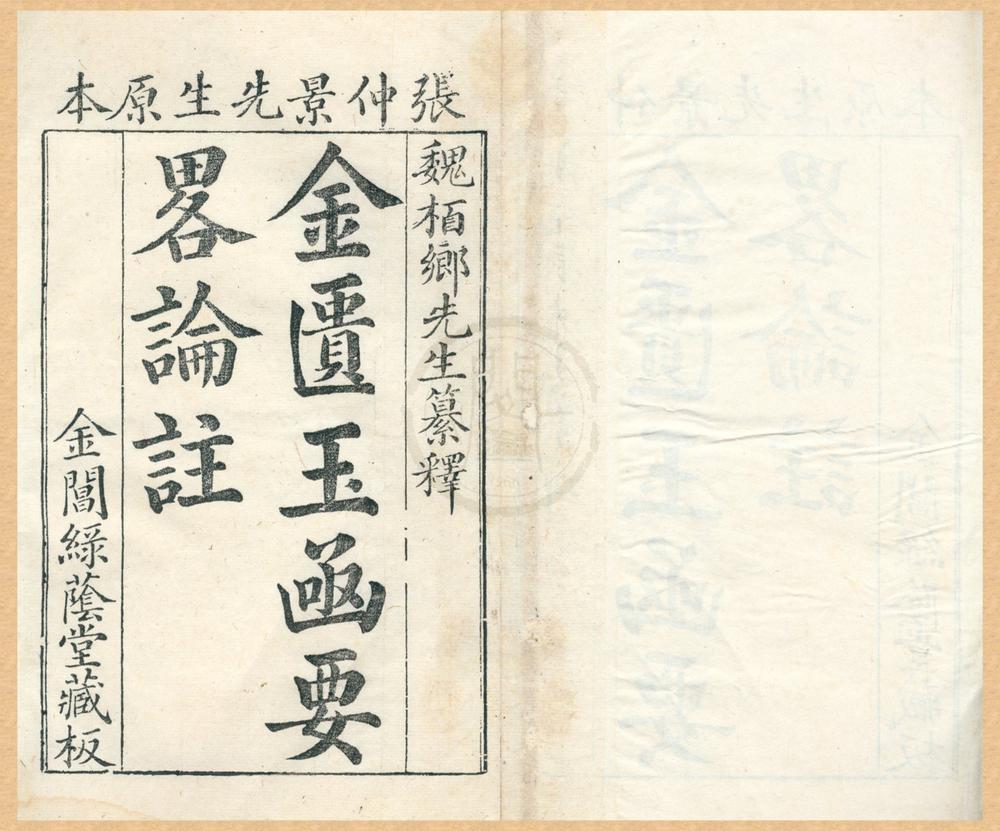 張仲景先生原本
魏栢鄉先生纂釋
金匱玉函要
畧論註
金閶綠蔭堂藏板